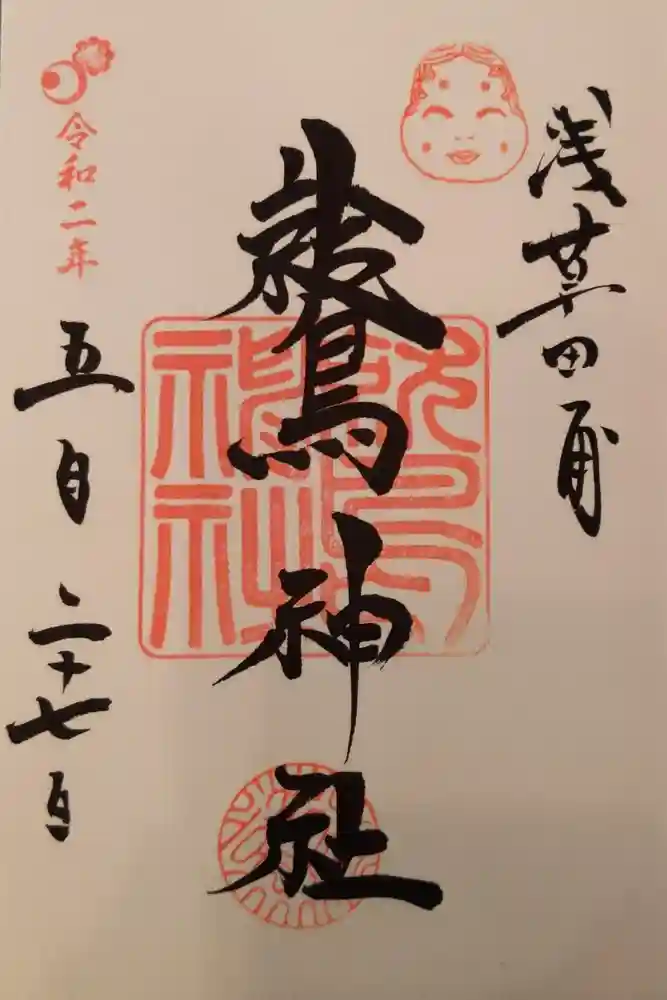 浅草田甫
鷲神社
令和二年
五月二十七日
鷲神社